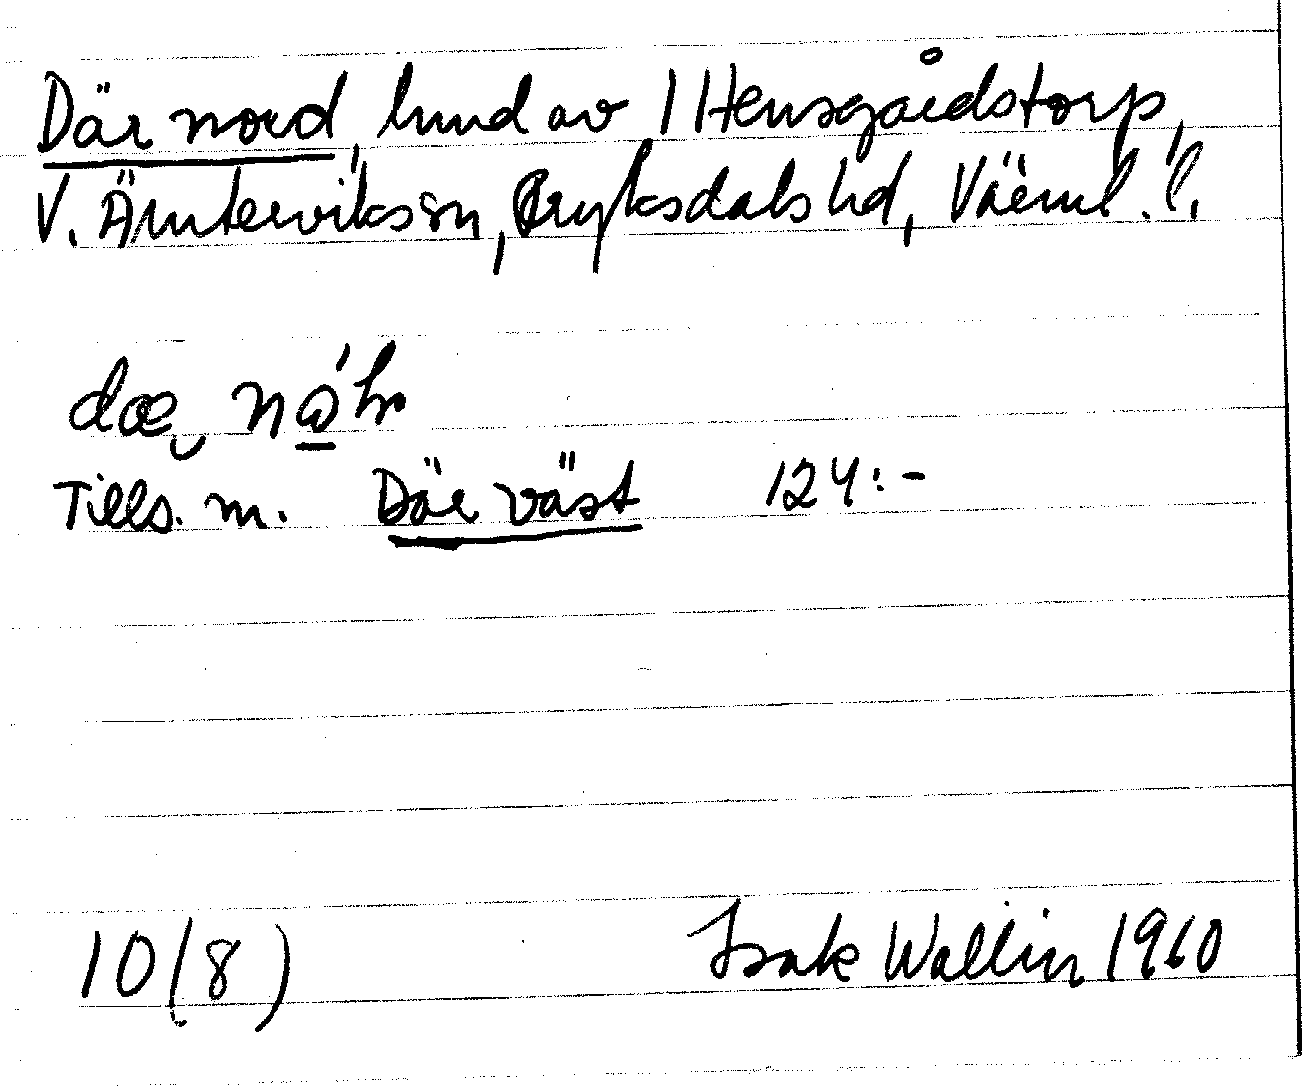 Där nord, hmd av 1 Hensgårdstorp,
V. Ämterviks sn, Fryksdals hd, Värml. l.
dæ nǫ́ʜ
Tills. m. Där väst 124:-
10(8) Isak Wallin 1960